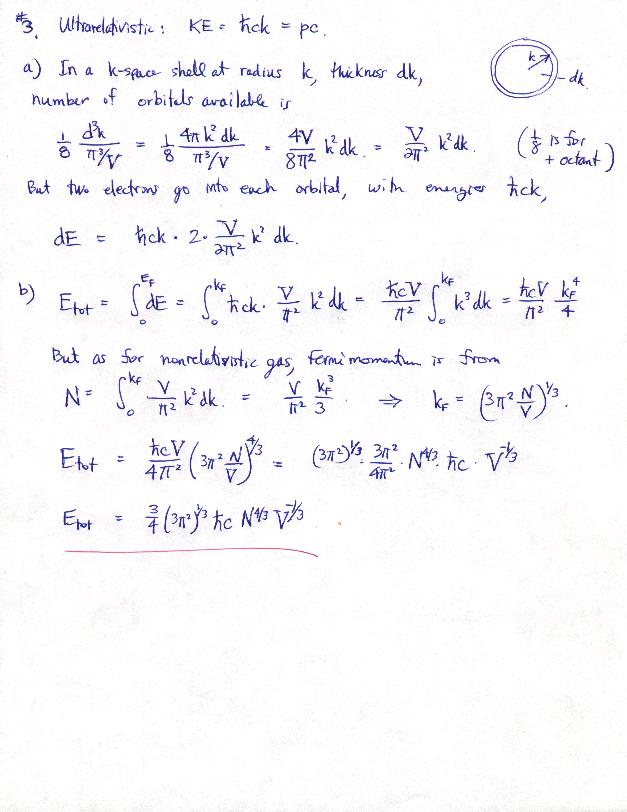 #3. Ultrarelativistic: KE = ħck = pc.
a) In a k-space shell at radius k, thickness dk,
k
dk
number of orbitals available is
1/8 d³k/(π³/V) = 1/8 4πk²dk/(π³/V) = 4V/8π² k²dk. = V/2π² k²dk. (1/8 is for + octant)
But two electrons go into each orbital, with energies ħck,
dE = ħck · 2 · V/2π² k² dk.
b) E_tot = ∫₀^{E_F} dE = ∫₀^{k_F} ħck · V/π² k² dk = ħcV/π² ∫₀^{k_F} k³dk = ħcV/π² k_F⁴/4
But as for nonrelativistic gas, Fermi momentum is from
N = ∫₀^{k_F} V/π² k²dk. = V/π² k_F³/3 ⇒ k_F = (3π² N/V)^{1/3}.
E_tot = ħcV/4π² (3π² N/V)^{4/3} = (3π²)^{1/3} · 3π²/4π² · N^{4/3} · ħc · V^{-1/3}
E_tot = 3/4 (3π²)^{1/3} ħc N^{4/3} V^{-1/3}